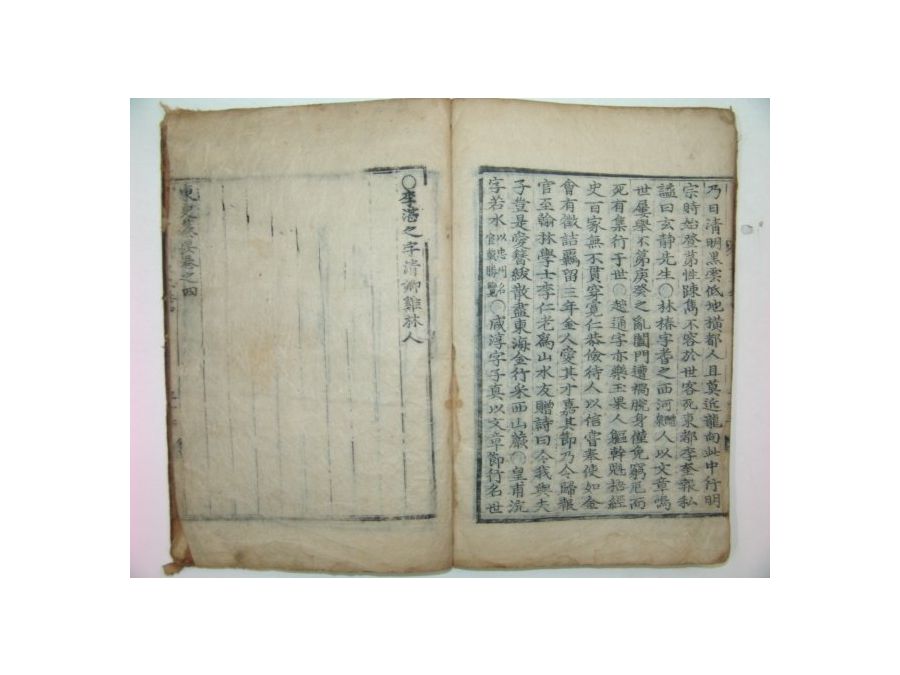 乃日淸明黑雲低地橫都人且莫近龍向此中行明
宗時始登第性踈雋不容於世客死東都李奎報私
謚曰玄靜先生○林椿字耆之西河人以文章鳴
世屢擧不第庚癸之亂闔門遭禍脫身僅免窮厄而
死有集行于世○趙通字亦樂玉果人軀幹魁梧經
史百家無不貫穿寬仁恭儉待人以信嘗奉使如金
會有徵詰羈留三年金人愛其才嘉其節乃令歸報
官至翰林學士李仁老爲山水友贈詩曰今我與夫
子豈是愛簪紱散盡東海金行采西山蕨○皇甫沆
字若水以忠州名官載勝覽○咸淳字子眞以文章節行名世
○李湛之字淸卿雞林人
東史纂要卷之四